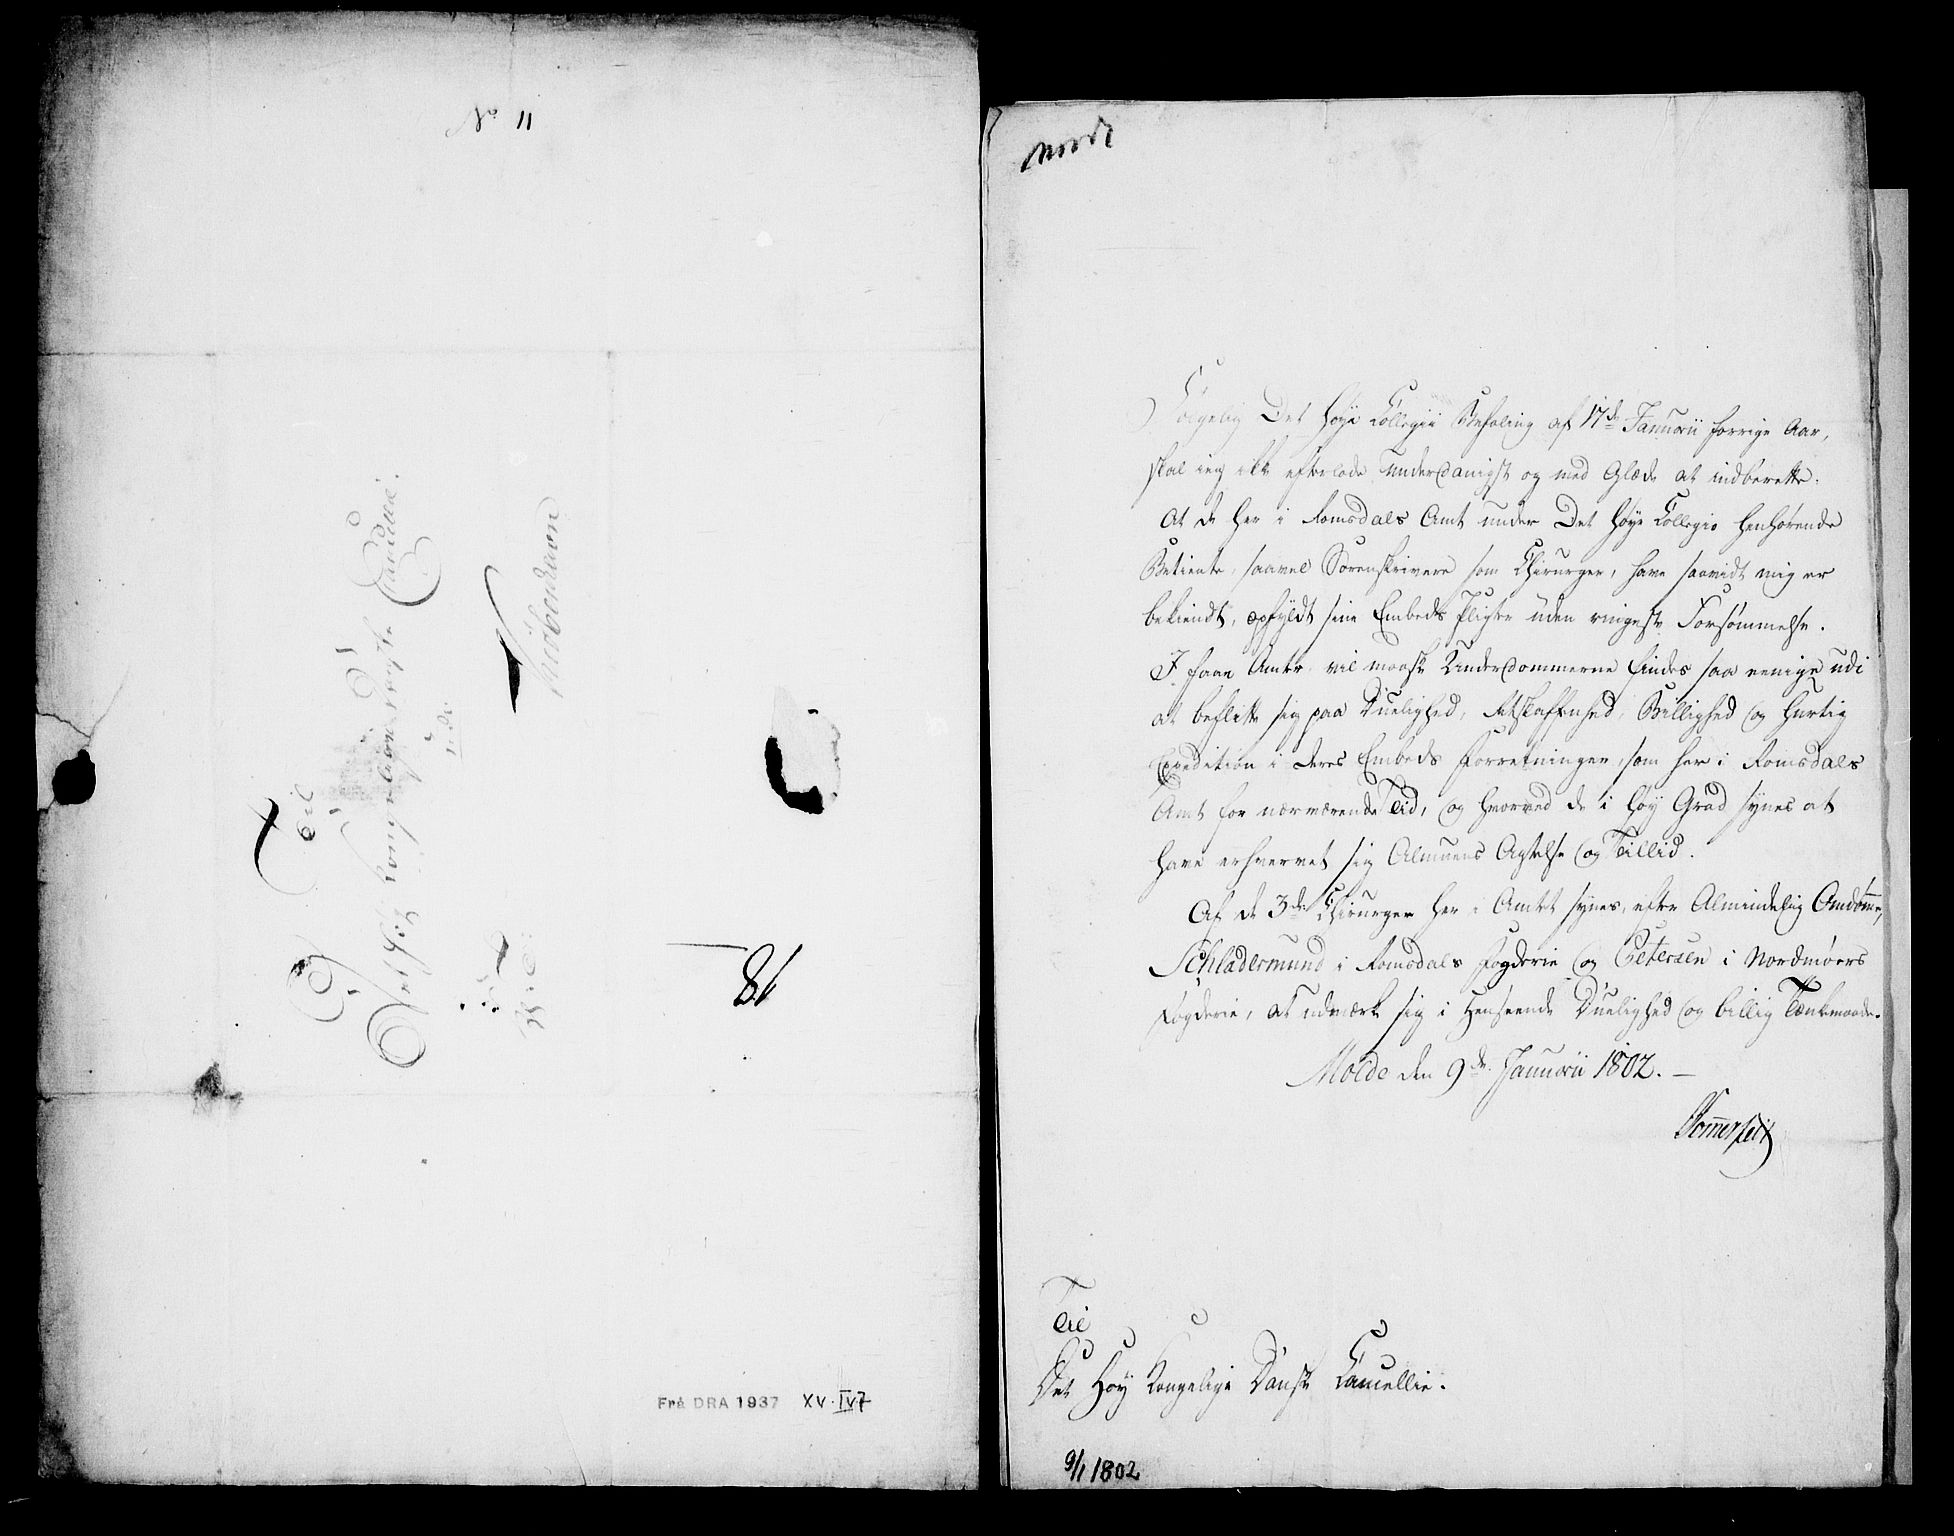 No 11
Til
Det høy Kongelige Danske Cancellie.
udi
Kiøbenhavn
18
Frå DRA 1937 XV.IV.7
Følgelig Det høye Collegii Befaling af 17de Januarii forrige Aar,
skal ieg ikke efterlade underdanigst og med Glæde at indberette.
At de her i Romsdals Amt under Det høye Collegio henhørende
Betiente, saavel Sorenskrivere som Chirurger, have saavidt mig er
bekiendt, opfyldt sine Embeds Pligter uden ringeste Forsømmelse.
I faae Amter vil maaske Underdommerne findes saa eenige udi
at beflitte sig paa Duelighed, Retskaffenhed, Billighed og hurtig
Expedition i deres Embeds Forretninger, som her i Romsdals
Amt for nærværende Tid, og hvorved de i høy Grad synes at
have erhvervet sig Almuens Agtelse og Tillid.
Af de 3de Chirurger her i Amtet synes, efter Almindelig Omdømme,
Schladermund i Romsdals Fogderie og Petersen i Nordmøers
Fogderie, at udmærke sig i Henseende Duelighed og billig Tænkemaade.
Molde den 9de Januarii 1802. —
Sommerfeldt
Til
Det Høy Kongelige Danske Cancellie.
9/1 1802